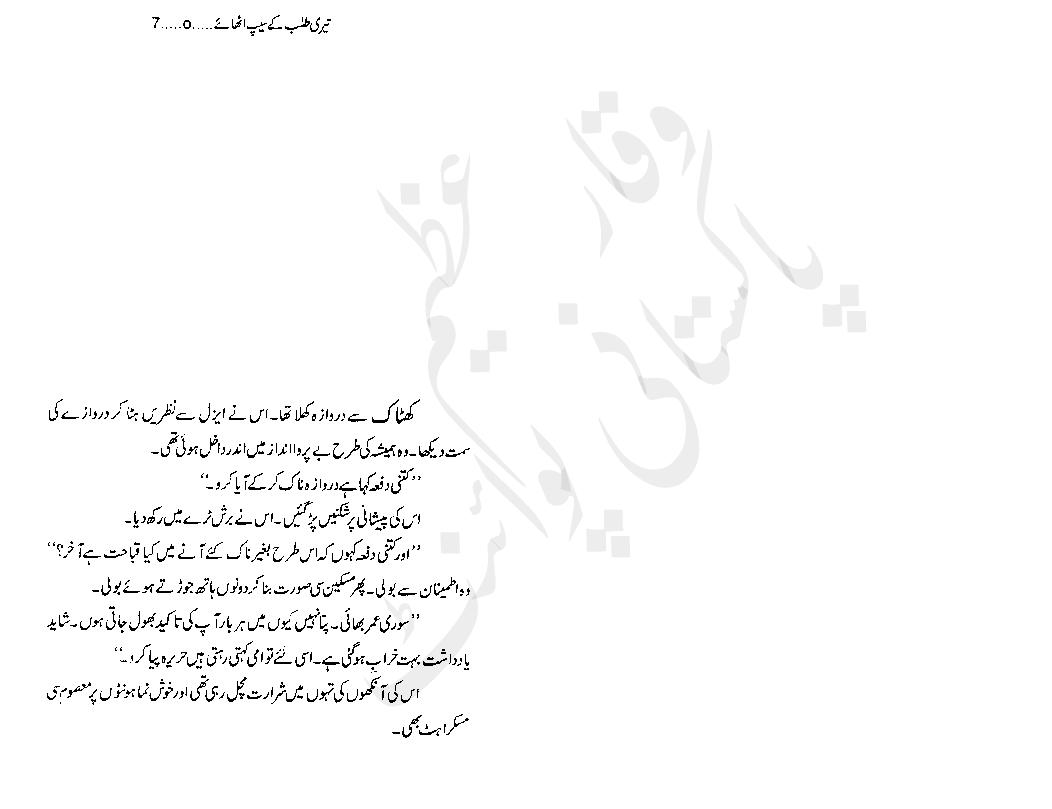 تیری طلب کے سیپ اٹھائے.....o.....7
کھٹاک سے دروازہ کھلا تھا۔ اس نے ایزل سے نظریں ہٹا کر دروازے کی
سمت دیکھا۔ وہ ہمیشہ کی طرح بے پروا انداز میں اندر داخل ہوئی تھی۔
’’کتنی دفعہ کہا ہے دروازہ ناک کر کے آیا کرو۔‘‘
اس کی پیشانی پر شکنیں پڑ گئیں۔ اس نے برش ٹرے میں رکھ دیا۔
’’اور کتنی دفعہ کہوں کہ اس طرح بغیر ناک کئے آنے میں کیا قباحت ہے آخر؟‘‘
وہ اطمینان سے بولی۔ پھر مسکین سی صورت بنا کر دونوں ہاتھ جوڑتے ہوئے بولی۔
’’سوری عمر بھائی۔ پتا نہیں کیوں میں ہر بار آپ کی تاکید بھول جاتی ہوں۔ شاید
یادداشت بہت خراب ہو گئی ہے۔ اسی لئے تو امی کہتی رہتی ہیں حریرہ پیا کرو۔‘‘
اس کی آنکھوں کی تہوں میں شرارت مچل رہی تھی اور خوش نما ہونٹوں پر معصوم سی
مسکراہٹ بھی۔
وقار عظیم
پاکستانی پوائنٹ